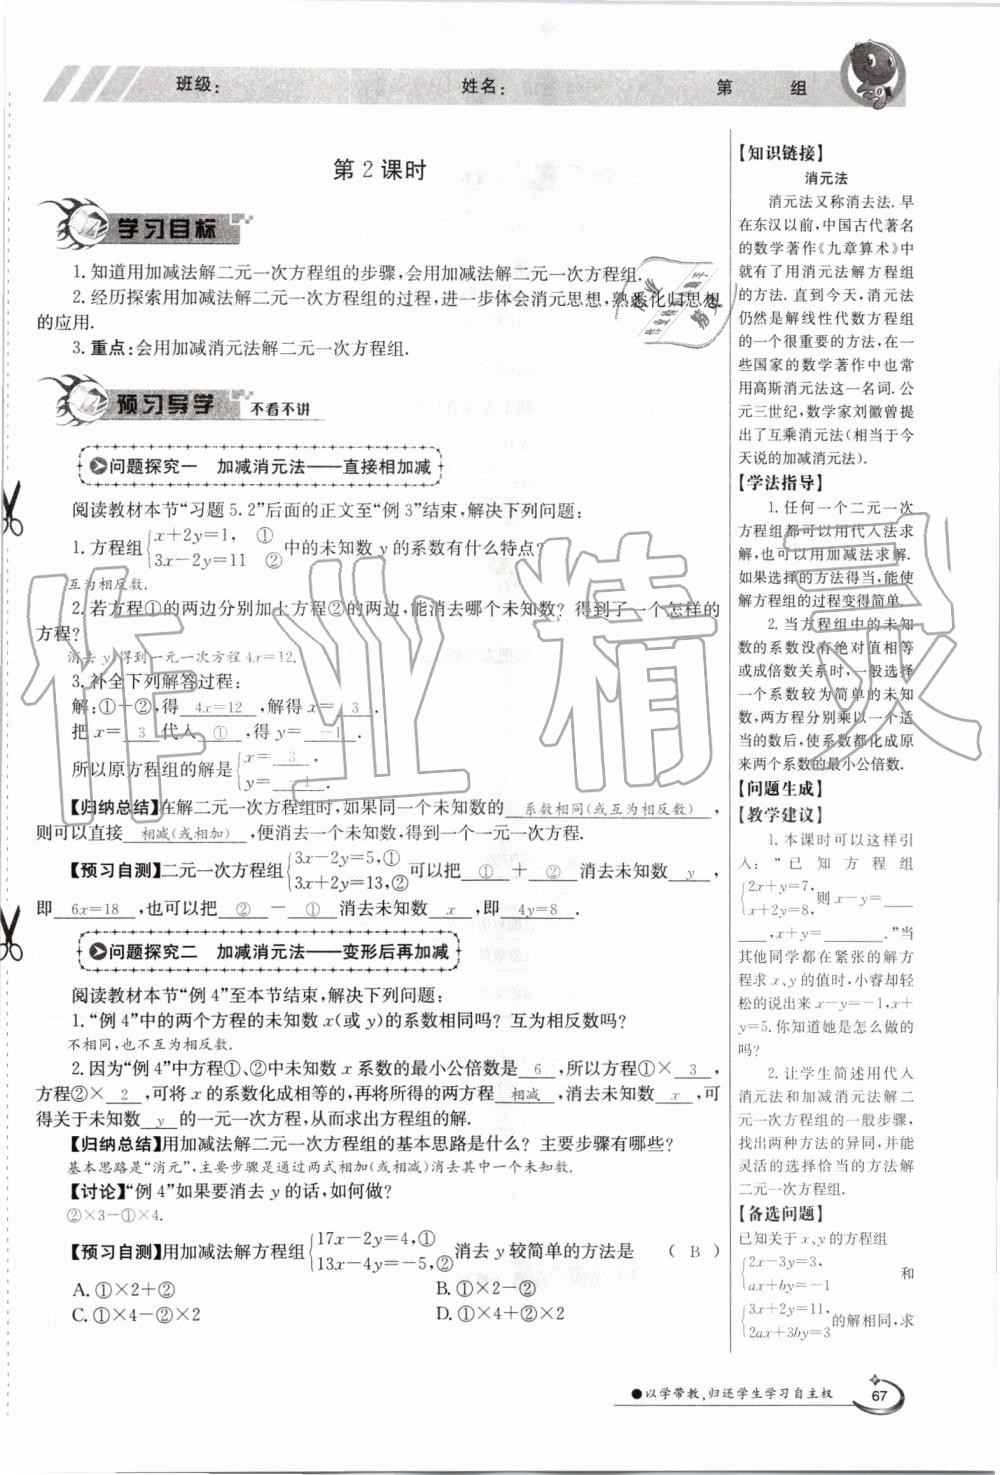 班级：
姓名：
第 组
第 2 课时
学习目标
1. 知道用加减法解二元一次方程组的步骤,会用加减法解二元一次方程组.
2. 经历探索用加减法解二元一次方程组的过程,进一步体会消元思想,熟悉化归思想
的应用.
3. 重点:会用加减消元法解二元一次方程组.
预习导学 不看不讲
问题探究一 加减消元法——直接相加减
阅读教材本节“习题 5.2”后面的正文至“例 3”结束,解决下列问题:
1. 方程组{x+2y=1, ①
3x-2y=11 ② 中的未知数 y 的系数有什么特点?
互为相反数.
2. 若方程①的两边分别加上方程②的两边,能消去哪个未知数? 得到了一个怎样的
方程?
消去 y,得到一元一次方程 4x=12.
3. 补全下列解答过程:
解:①+②,得 4x=12 ,解得 x= 3 .
把 x= 3 代入 ① ,得 y= -1 .
所以原方程组的解是{x= 3 .
y= -1
【归纳总结】在解二元一次方程组时,如果同一个未知数的 系数相同(或互为相反数) ,
则可以直接 相减(或相加) ,便消去一个未知数,得到一个一元一次方程.
【预习自测】二元一次方程组{3x-2y=5,①
3x+2y=13,② 可以把 ① + ② 消去未知数 y ,
即 6x=18 ,也可以把 ② - ① 消去未知数 x ,即 4y=8 .
问题探究二 加减消元法——变形后再加减
阅读教材本节“例 4”至本节结束,解决下列问题:
1. “例 4”中的两个方程的未知数 x(或 y)的系数相同吗? 互为相反数吗?
不相同,也不互为相反数.
2. 因为“例 4”中方程①、②中未知数 x 系数的最小公倍数是 6 ,所以方程①× 3 ,
方程②× 2 ,可将 x 的系数化成相等的,再将所得的两方程 相减 ,消去未知数 x ,可
得关于未知数 y 的一元一次方程,从而求出方程组的解.
【归纳总结】用加减法解二元一次方程组的基本思路是什么? 主要步骤有哪些?
基本思路是“消元”,主要步骤是通过两式相加(或相减)消去其中一个未知数.
【讨论】“例 4”如果要消去 y 的话,如何做?
②×3-①×4.
【预习自测】用加减法解方程组{17x-2y=4,①
13x-4y=-5,② 消去 y 较简单的方法是 ( B )
A. ①×2+② B. ①×2-②
C. ①×4-②×2 D. ①×4+②×2
【知识链接】
消元法
消元法又称消去法. 早
在东汉以前,中国古代著名
的数学著作《九章算术》中
就有了用消元法解方程组
的方法. 直到今天,消元法
仍然是解线性代数方程组
的一个很重要的方法,在一
些国家的数学著作中也常
用高斯消元法这一名词. 公
元三世纪,数学家刘徽曾提
出了互乘消元法(相当于今
天说的加减消元法).
【学法指导】
1. 任何一个二元一次
方程组都可以用代入法求
解,也可以用加减法求解.
如果选择的方法得当,能使
解方程组的过程变得简单.
2. 当方程组中的未知
数的系数没有绝对值相等
或成倍数关系时,一般选择
一个系数较为简单的未知
数,两方程分别乘以一个适
当的数后,使系数都化成原
来两个系数的最小公倍数.
【问题生成】
【教学建议】
1. 本课时可以这样引
入:“已知方程组
{2x+y=7,
x+2y=8, 则 x-y=
,x+y= .”当
其他同学都在紧张的解方
程求 x、y 的值时,小睿却轻
松的说出来 x-y=-1,x+
y=5. 你知道她是怎么做的
吗?
2. 让学生简述用代入
消元法和加减消元法解二
元一次方程组的一般步骤,
找出两种方法的异同,并能
灵活的选择恰当的方法解
二元一次方程组.
【备选问题】
已知关于 x、y 的方程组
{2x-3y=3,
ax+by=-1 和
{3x+2y=11,
2ax+3by=3 的解相同,求
●以学带教,归还学生学习自主权
67
作业精灵